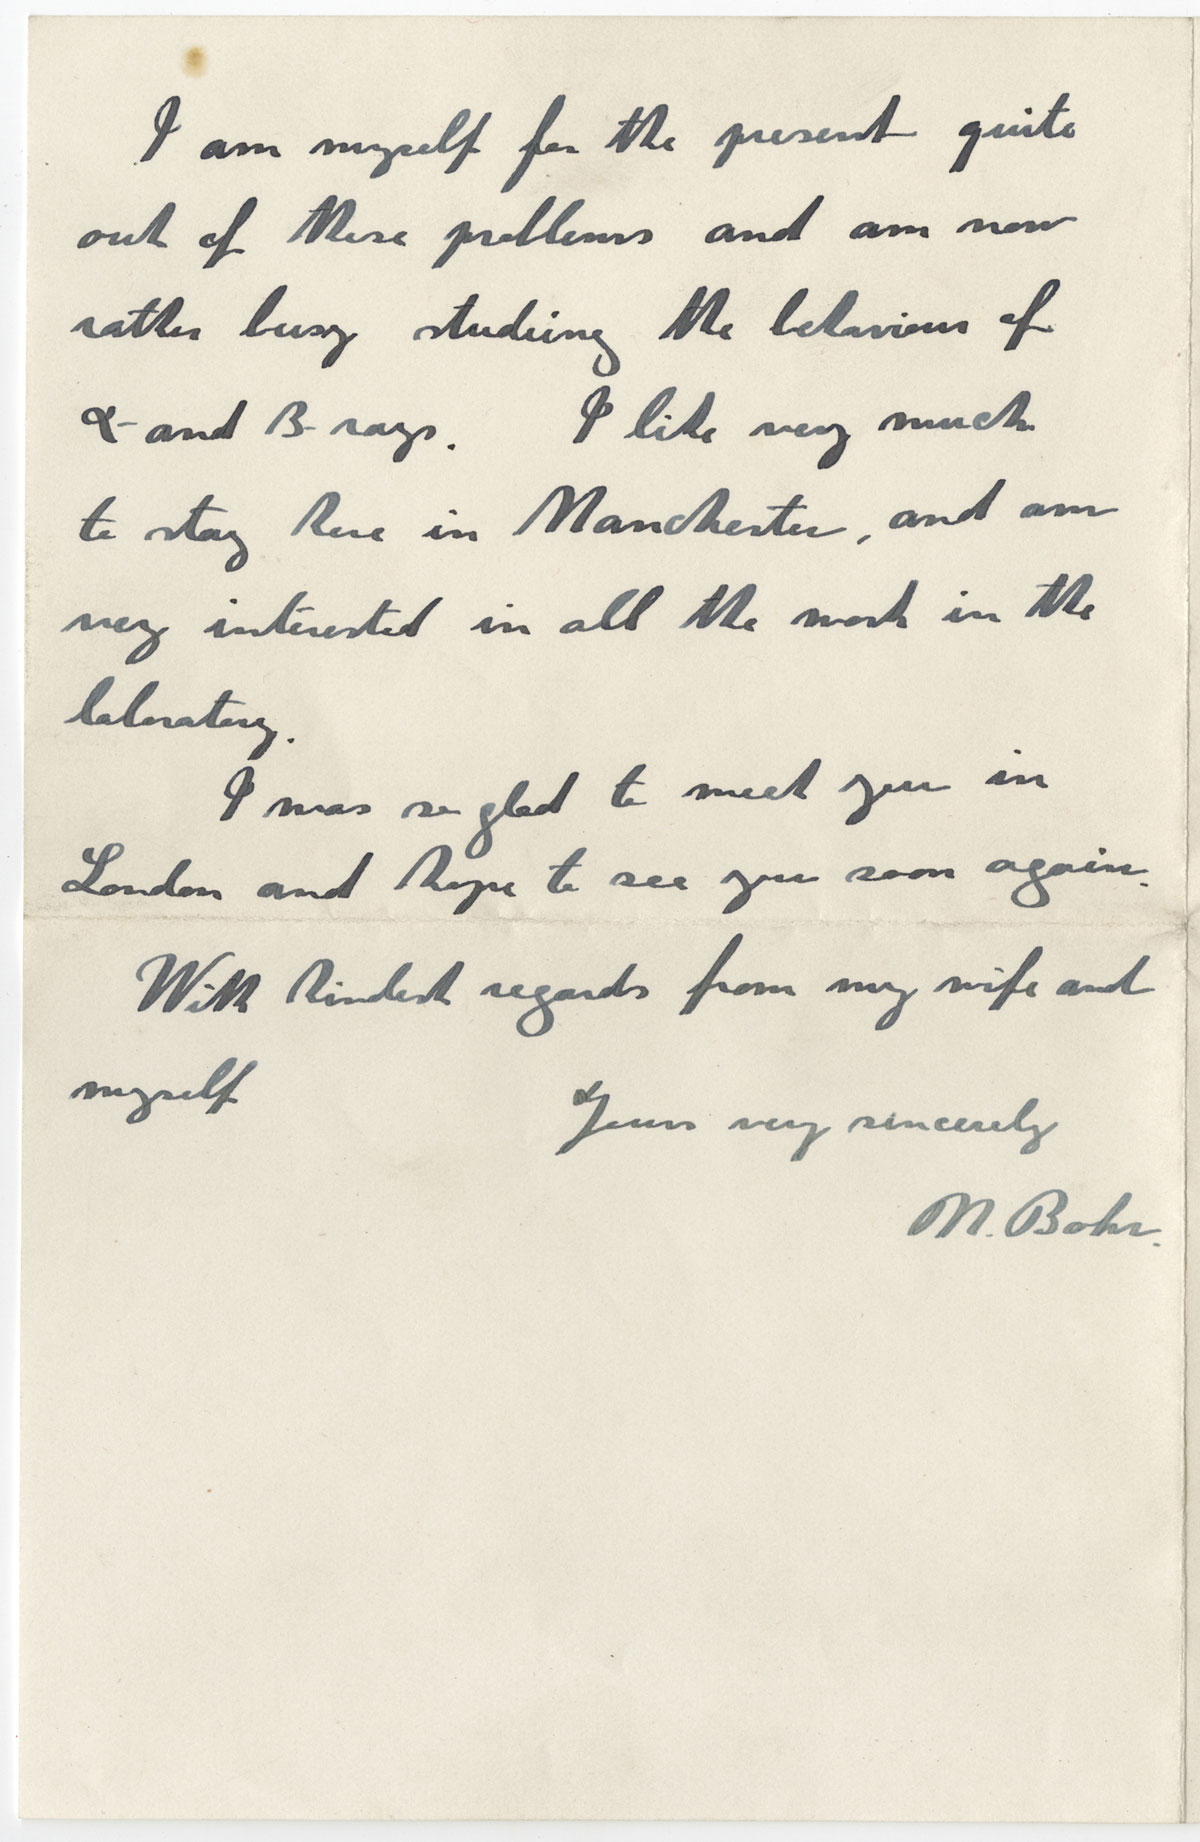 I am myself for the present quite
out of these problems and am now
rather busy studiing the behaviour of
α- and β- rays. I like very much
to stay here in Manchester, and am
very interested in all the work in the
laboratory.
I was so glad to meet you in
London and hope to see you soon again.
With kindest regards from my wife and
myself
Yours very sincerely
N. Bohr.